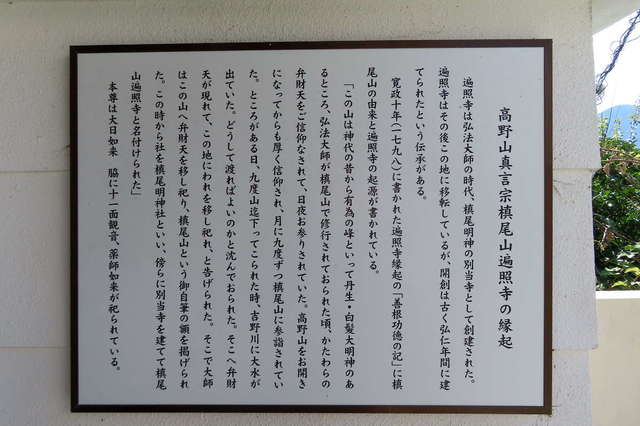 高野山真言宗槙尾山遍照寺の縁起
遍照寺は弘法大師の時代、槙尾明神の別当寺として創建された。
遍照寺はその後この地に移転しているが、開創は古く弘仁年間に建
てられたという伝承がある。
寛政十年(一七九八)に書かれた遍照寺縁起の「善根功徳の記」に槙
尾山の由来と遍照寺の起源が書かれている。
「この山は神代の昔から有為の峰といって丹生・白髪大明神のあ
るところ、弘法大師が槙尾山で修行されておられた頃、かたわらの
弁財天をご信仰なされて、日夜お参りされていた。高野山をお開き
になってからも厚く信仰され、月に九度ずつ槙尾山に参詣されてい
た。ところがある日、九度山迄下ってこられた時、吉野川に大水が
出ていた。どうして渡ればよいのかと沈んでおられた。そこへ弁財
天が現れて、この地にわれを移し祀れ、と告げられた。そこで大師
はこの山へ弁財天を移し祀り、槙尾山という御自筆の額を掲げられ
た。この時から社を槙尾明神社といい、傍らに別当寺を建てて槙尾
山遍照寺と名付けられた」
本尊は大日如来 脇に十一面観音、薬師如来が祀られている。